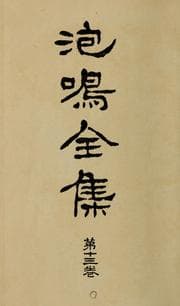 泡鳴全集
第十三卷